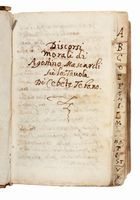 Discorsi
morali di
Agostino Mascardi
su la Tauola
Di Cebete Tebano.
A
B
C
D
E
F
G
H
I
L
M
N
O
P
Q
R
S
T
V